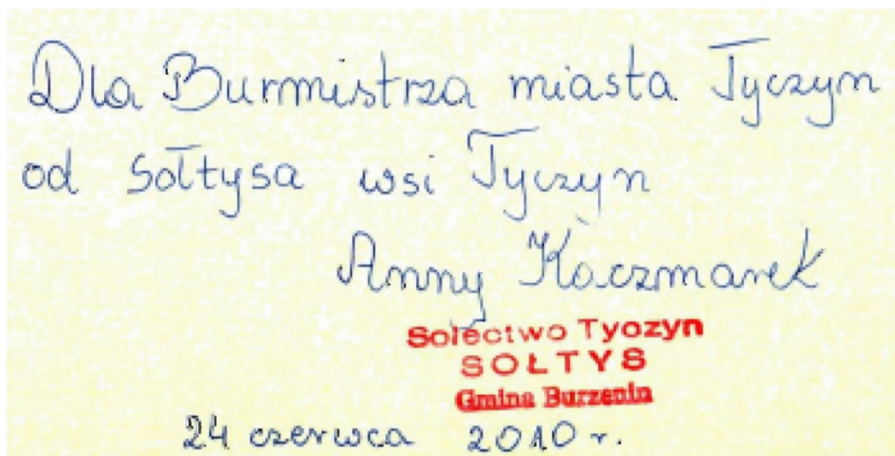 Dla Burmistrza miasta Tyczyn
od sołtysa wsi Tyczyn
Anny Kaczmarek
Sołectwo Tyczyn
SOŁTYS
Gmina Burzenin
24 czerwca 2010 r.